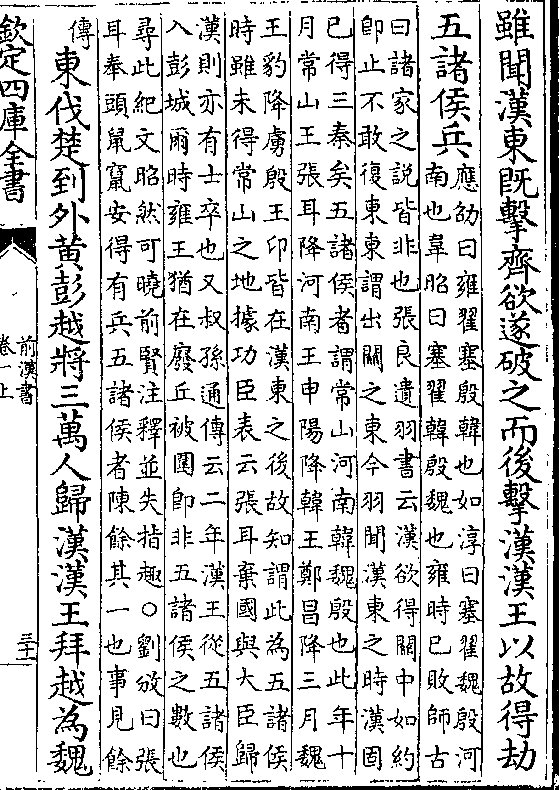 雖聞漢東既擊齊欲遂破之而後擊漢漢王以故得劫
五諸侯兵
應劭曰雍翟塞殷韓也如淳曰塞翟魏殷河
南也韋昭曰塞翟韓殷魏也雍時已敗師古
曰諸家之説皆非也張良遺羽書云漢欲得關中如約
即止不敢復東東謂出關之東今羽聞漢東之時漢固
已得三秦矣五諸侯者謂常山河南韓魏殷也此年十
月常山王張耳降河南王申陽降韓王鄭昌降三月魏
王豹降虜殷王卬皆在漢東之後故知謂此為五諸侯
時雖未得常山之地據功臣表云張耳棄國與大臣歸
漢則亦有士卒也又叔孫通傳云二年漢王從五諸侯
入彭城爾時雍王猶在廢丘被圍即非五諸侯之數也
尋此紀文昭然可曉前賢注釋並失指趣○劉攽曰張
耳奉頭鼠竄安得有兵五諸侯者陳餘其一也事見餘
傳
東伐楚到外黃彭越將三萬人歸漢漢王拜越為魏
欽定四庫全書
前漢書
卷一上
三十二